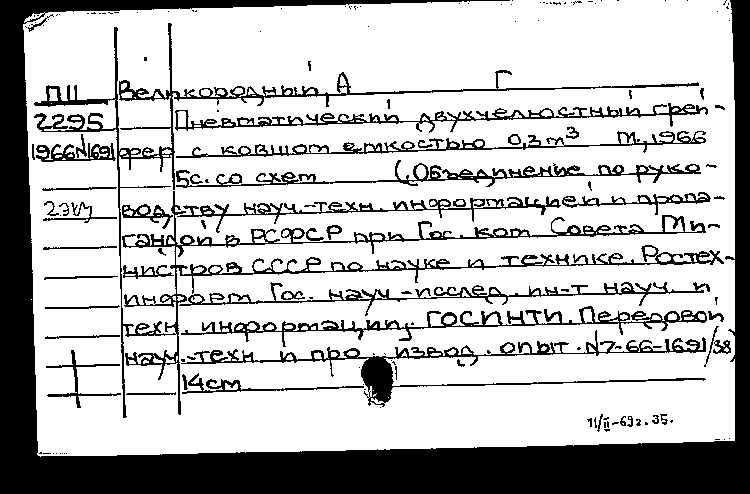 П11 Великородный, А Г
2295 Пневматический двухчелюстный грей-
1966N1691 фер с ковшом емкостью 0,3 м³ М., 1966
5с. со схем (Объединение по руко-
2 экз водству науч.-техн. информацией и пропа-
гандой в РСФСР при Гос. ком Совета Ми-
нистров СССР по науке и технике. Ростех-
информ Гос. науч.-исслед. ин-т науч. и
техн. информации, ГОСИНТИ. Передовой
науч.-техн и произвад. опыт. N7-66-1691/38)
14cm
11/II-69г. 35.